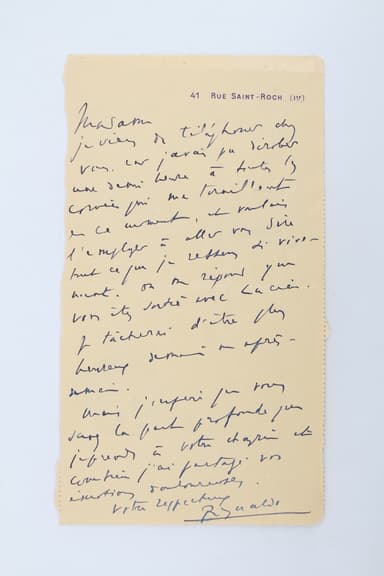 41 RUE SAINT-ROCH (Ier)
Madame
je viens de téléphoner chez
vous, car j'avais pu dérober
une demi heure à toutes les
corvées qui me
en ce moment, et voulais
l'employer à aller vous dire
tout ce que je ressens si vive-
ment. On me répond que
vous êtes sortie avec Lucien.
Je tâcherai d'être plus
heureux demain ou après-
demain.
Mais j'espère que vous
savez la part profonde que
je prends à votre chagrin et
combien j'ai partagé vos
émotions douloureuses.
Votre respectueux
Reynaldo